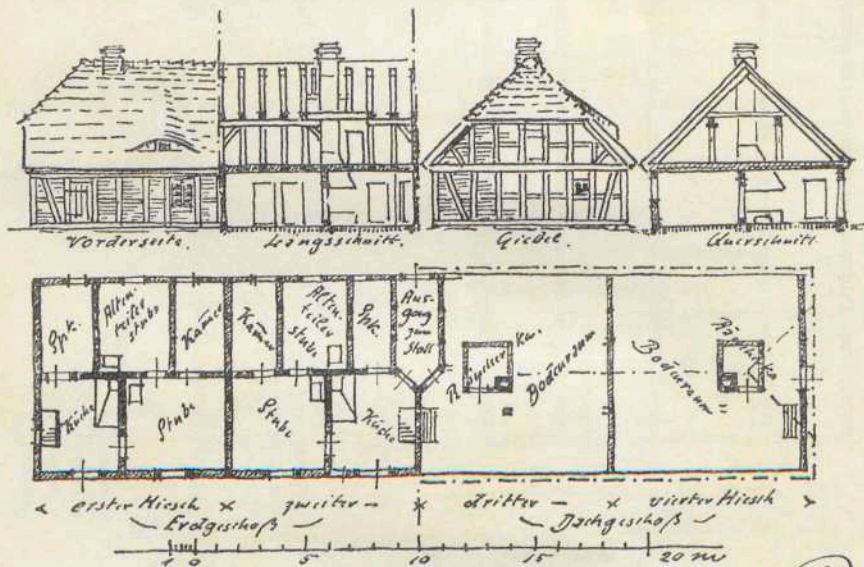 Vorderseite. Längsschnitt. Giebel. Querschnitt.
Spk.
Alten-
teiler
stube
Kam̄er
Kam̄er
Alten-
teiler
stube
Spk.
Aus-
gang
zum
Stall
Küche
Stube
Stube
Küche
Räucher Ka.
Bodenraum
Bodenraum
erster Hiesch × zweiter – × dritter – × vierter Hiesch
Erdgeschoß Dachgeschoß
1 0 5 10 15 20 m